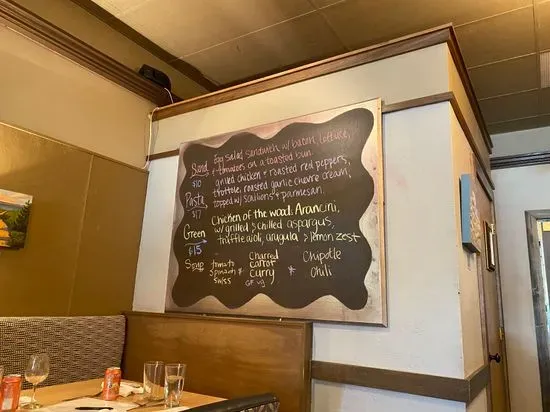 Sand Egg salad sandwich w/ bacon, lettuce,
$10 + tomatoes on a toasted bun.
Pasta grilled chicken + roasted red peppers,
$17 roasted garlic cream,
topped w/ scallions + parmesan.
Green Chicken of the woods Arancini,
$15 w/ grilled + chilled aspargus,
truffle aioli, arugula + lemon zest
Soup tomato spinach + swiss
Charred carrot curry GF vg
* Chipotle chili